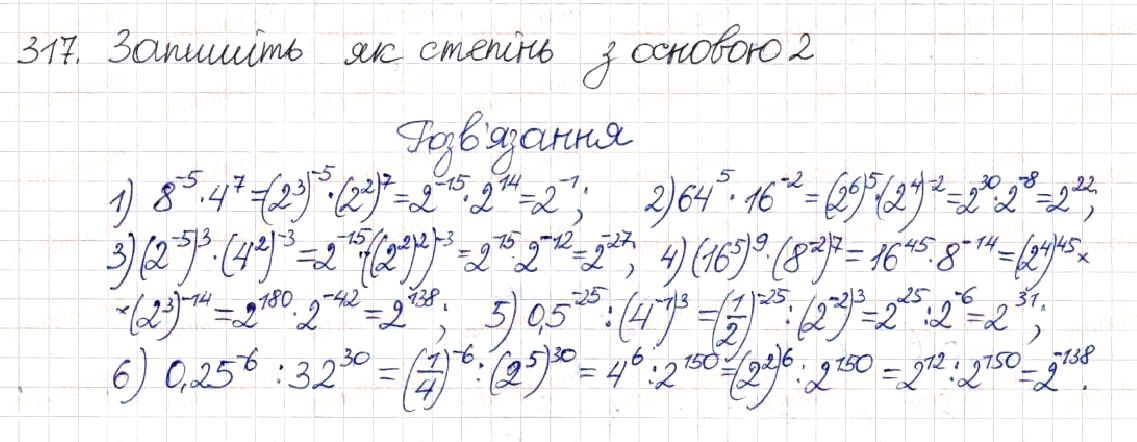 317. Запишіть як степінь з основою 2
Розв'язання
1) 8⁻⁵·4⁷=(2³)⁻⁵·(2²)⁷=2⁻¹⁵·2¹⁴=2⁻¹; 2) 64⁵·16⁻²=(2⁶)⁵·(2⁴)⁻²=2³⁰·2⁻⁸=2²²;
3) (2⁻⁵)³·(4²)⁻³=2⁻¹⁵·((2²)²)⁻³=2⁻¹⁵·2⁻¹²=2⁻²⁷; 4) (16⁵)⁹·(8⁻²)⁷=16⁴⁵·8⁻¹⁴=(2⁴)⁴⁵×
×(2³)⁻¹⁴=2¹⁸⁰·2⁻⁴²=2¹³⁸; 5) 0,5⁻²⁵:(4⁻¹)³=(1/2)⁻²⁵:(2⁻²)³=2²⁵:2⁻⁶=2³¹;
6) 0,25⁻⁶:32³⁰=(1/4)⁻⁶:(2⁵)³⁰=4⁶:2¹⁵⁰=(2²)⁶:2¹⁵⁰=2¹²:2¹⁵⁰=2⁻¹³⁸.